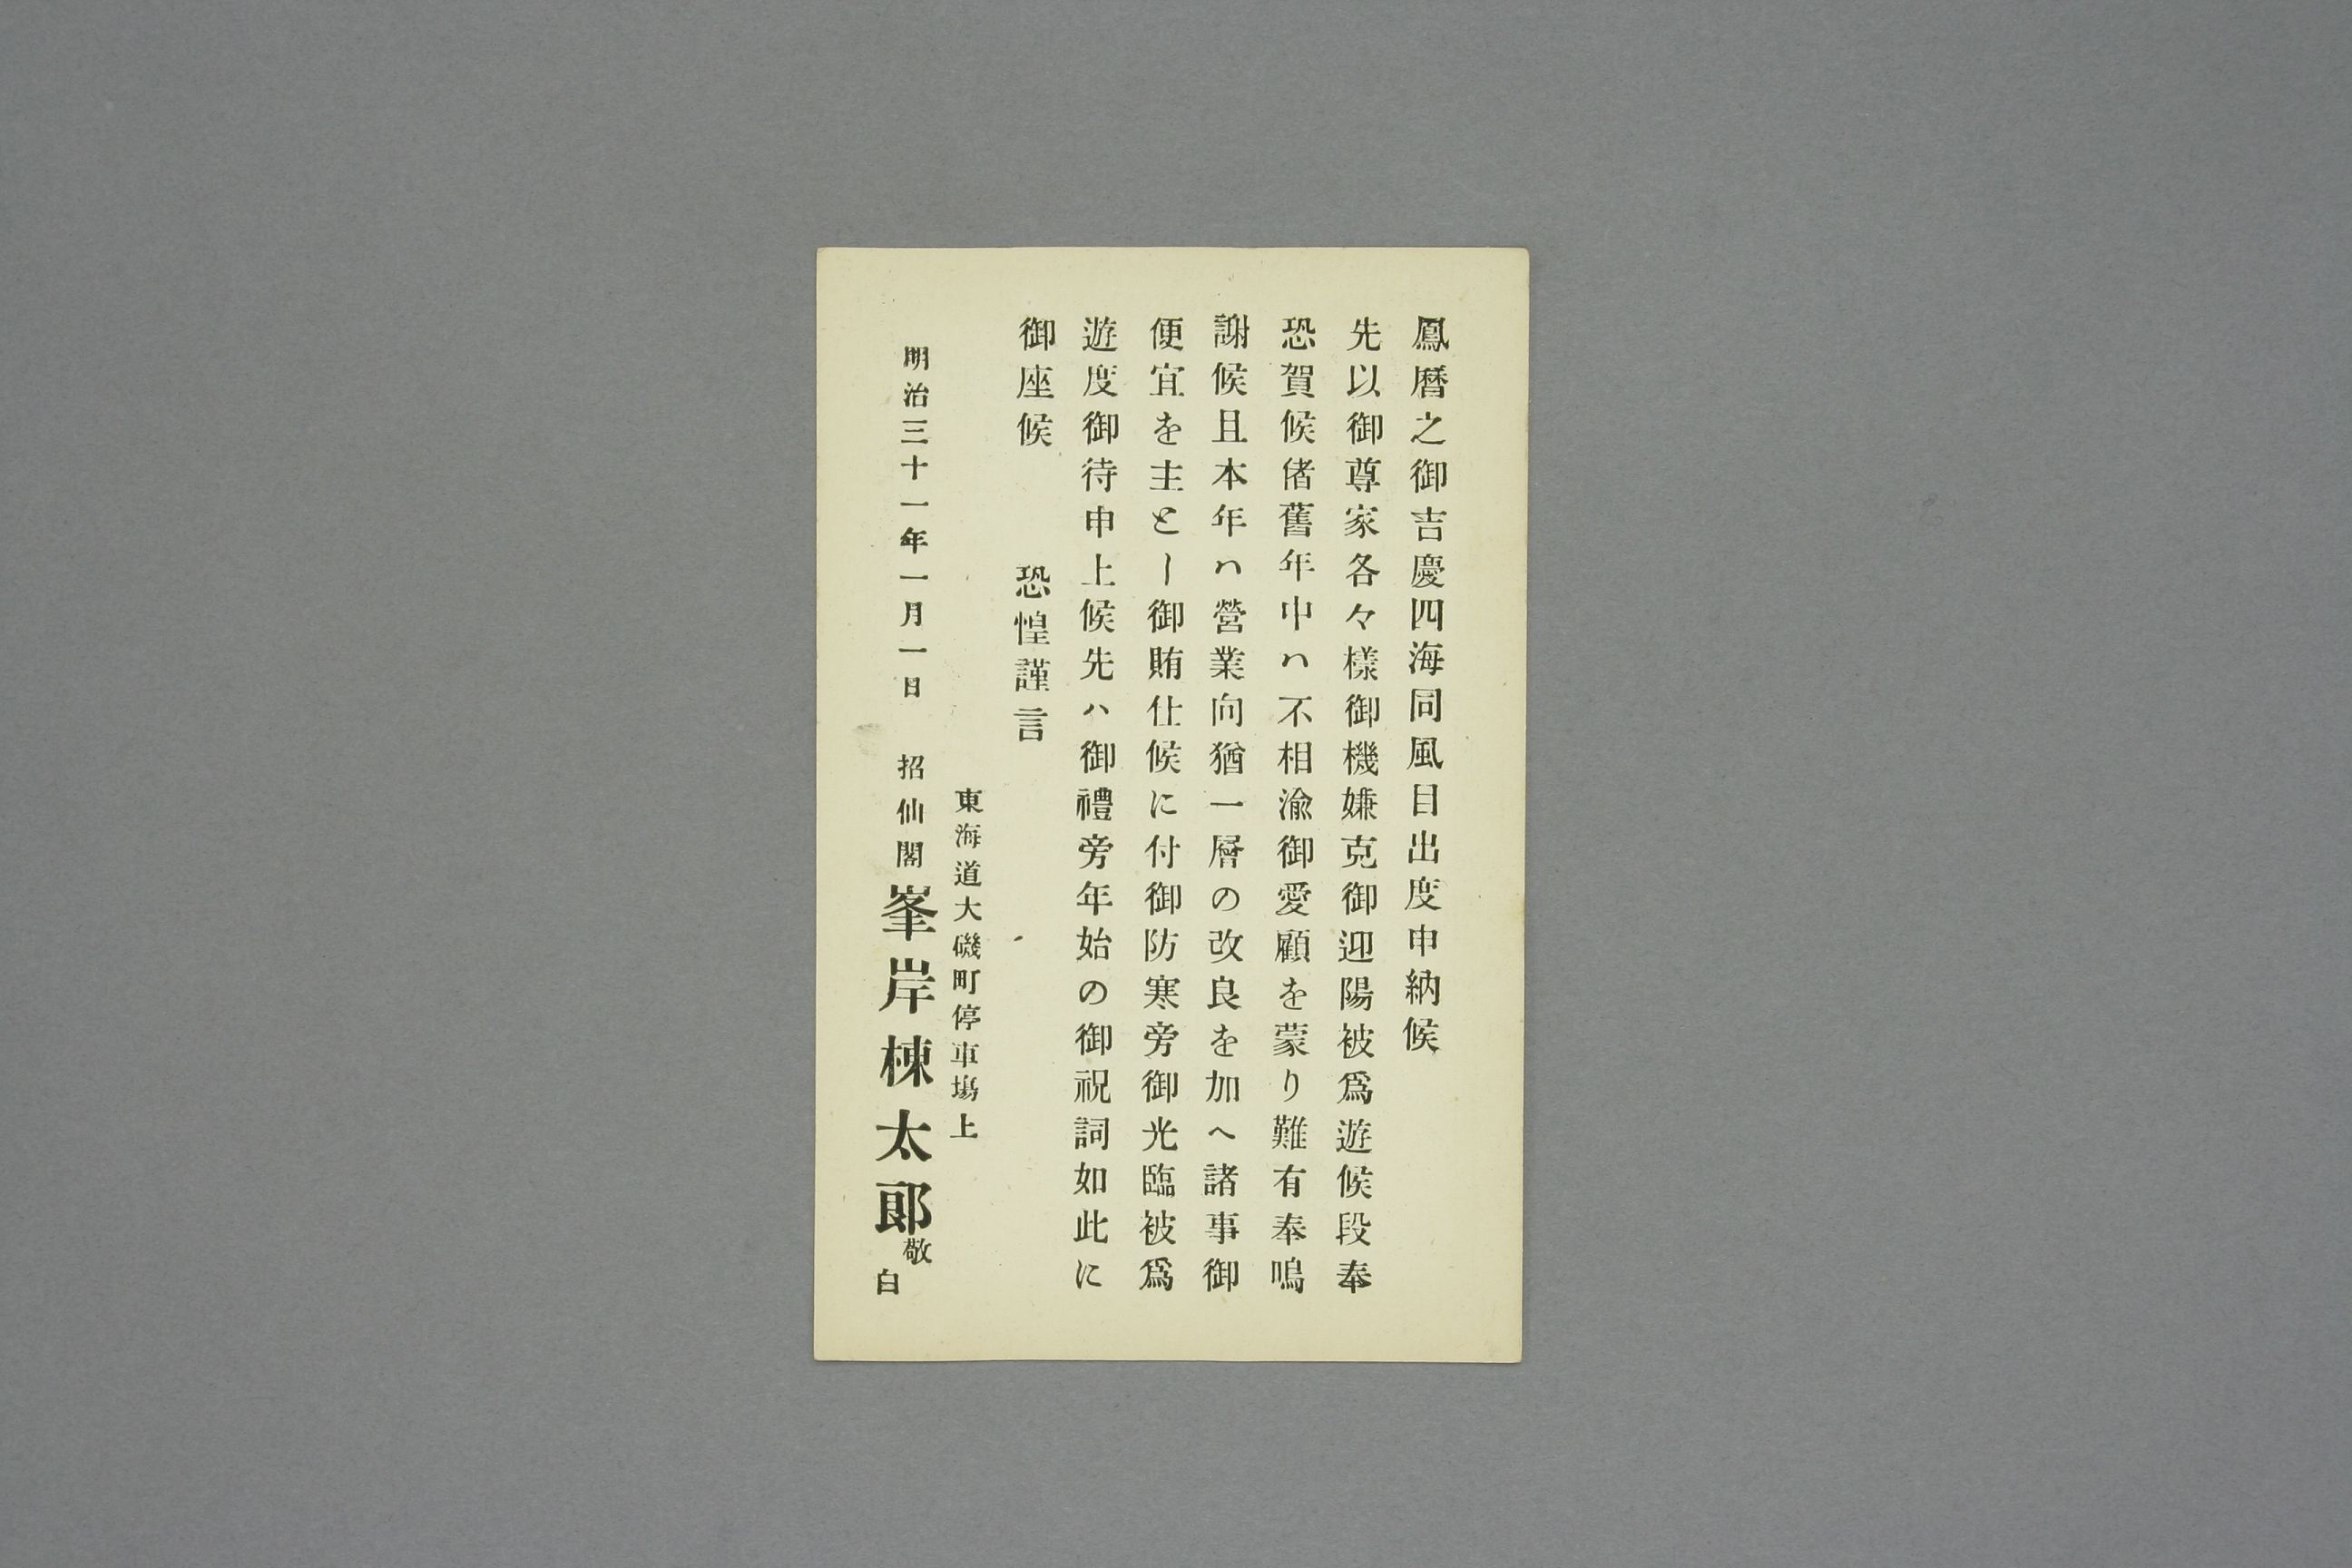 鳳暦之御吉慶四海同風目出度申納候
先以御尊家各々様御機嫌克御迎陽被爲遊候段奉
恐賀候偖舊年中ハ不相渝御愛顧を蒙り難有奉鳴
謝候且本年ハ營業向猶一層の改良を加へ諸事御
便宜を主とし御賄仕候に付御防寒旁御光臨被爲
遊度御待申上候先ハ御禮旁年始の御祝詞如此に
御座候　　恐惶謹言
東海道大磯町停車塲上
明治三十一年一月一日　招仙閣 峯岸棟太郎敬白